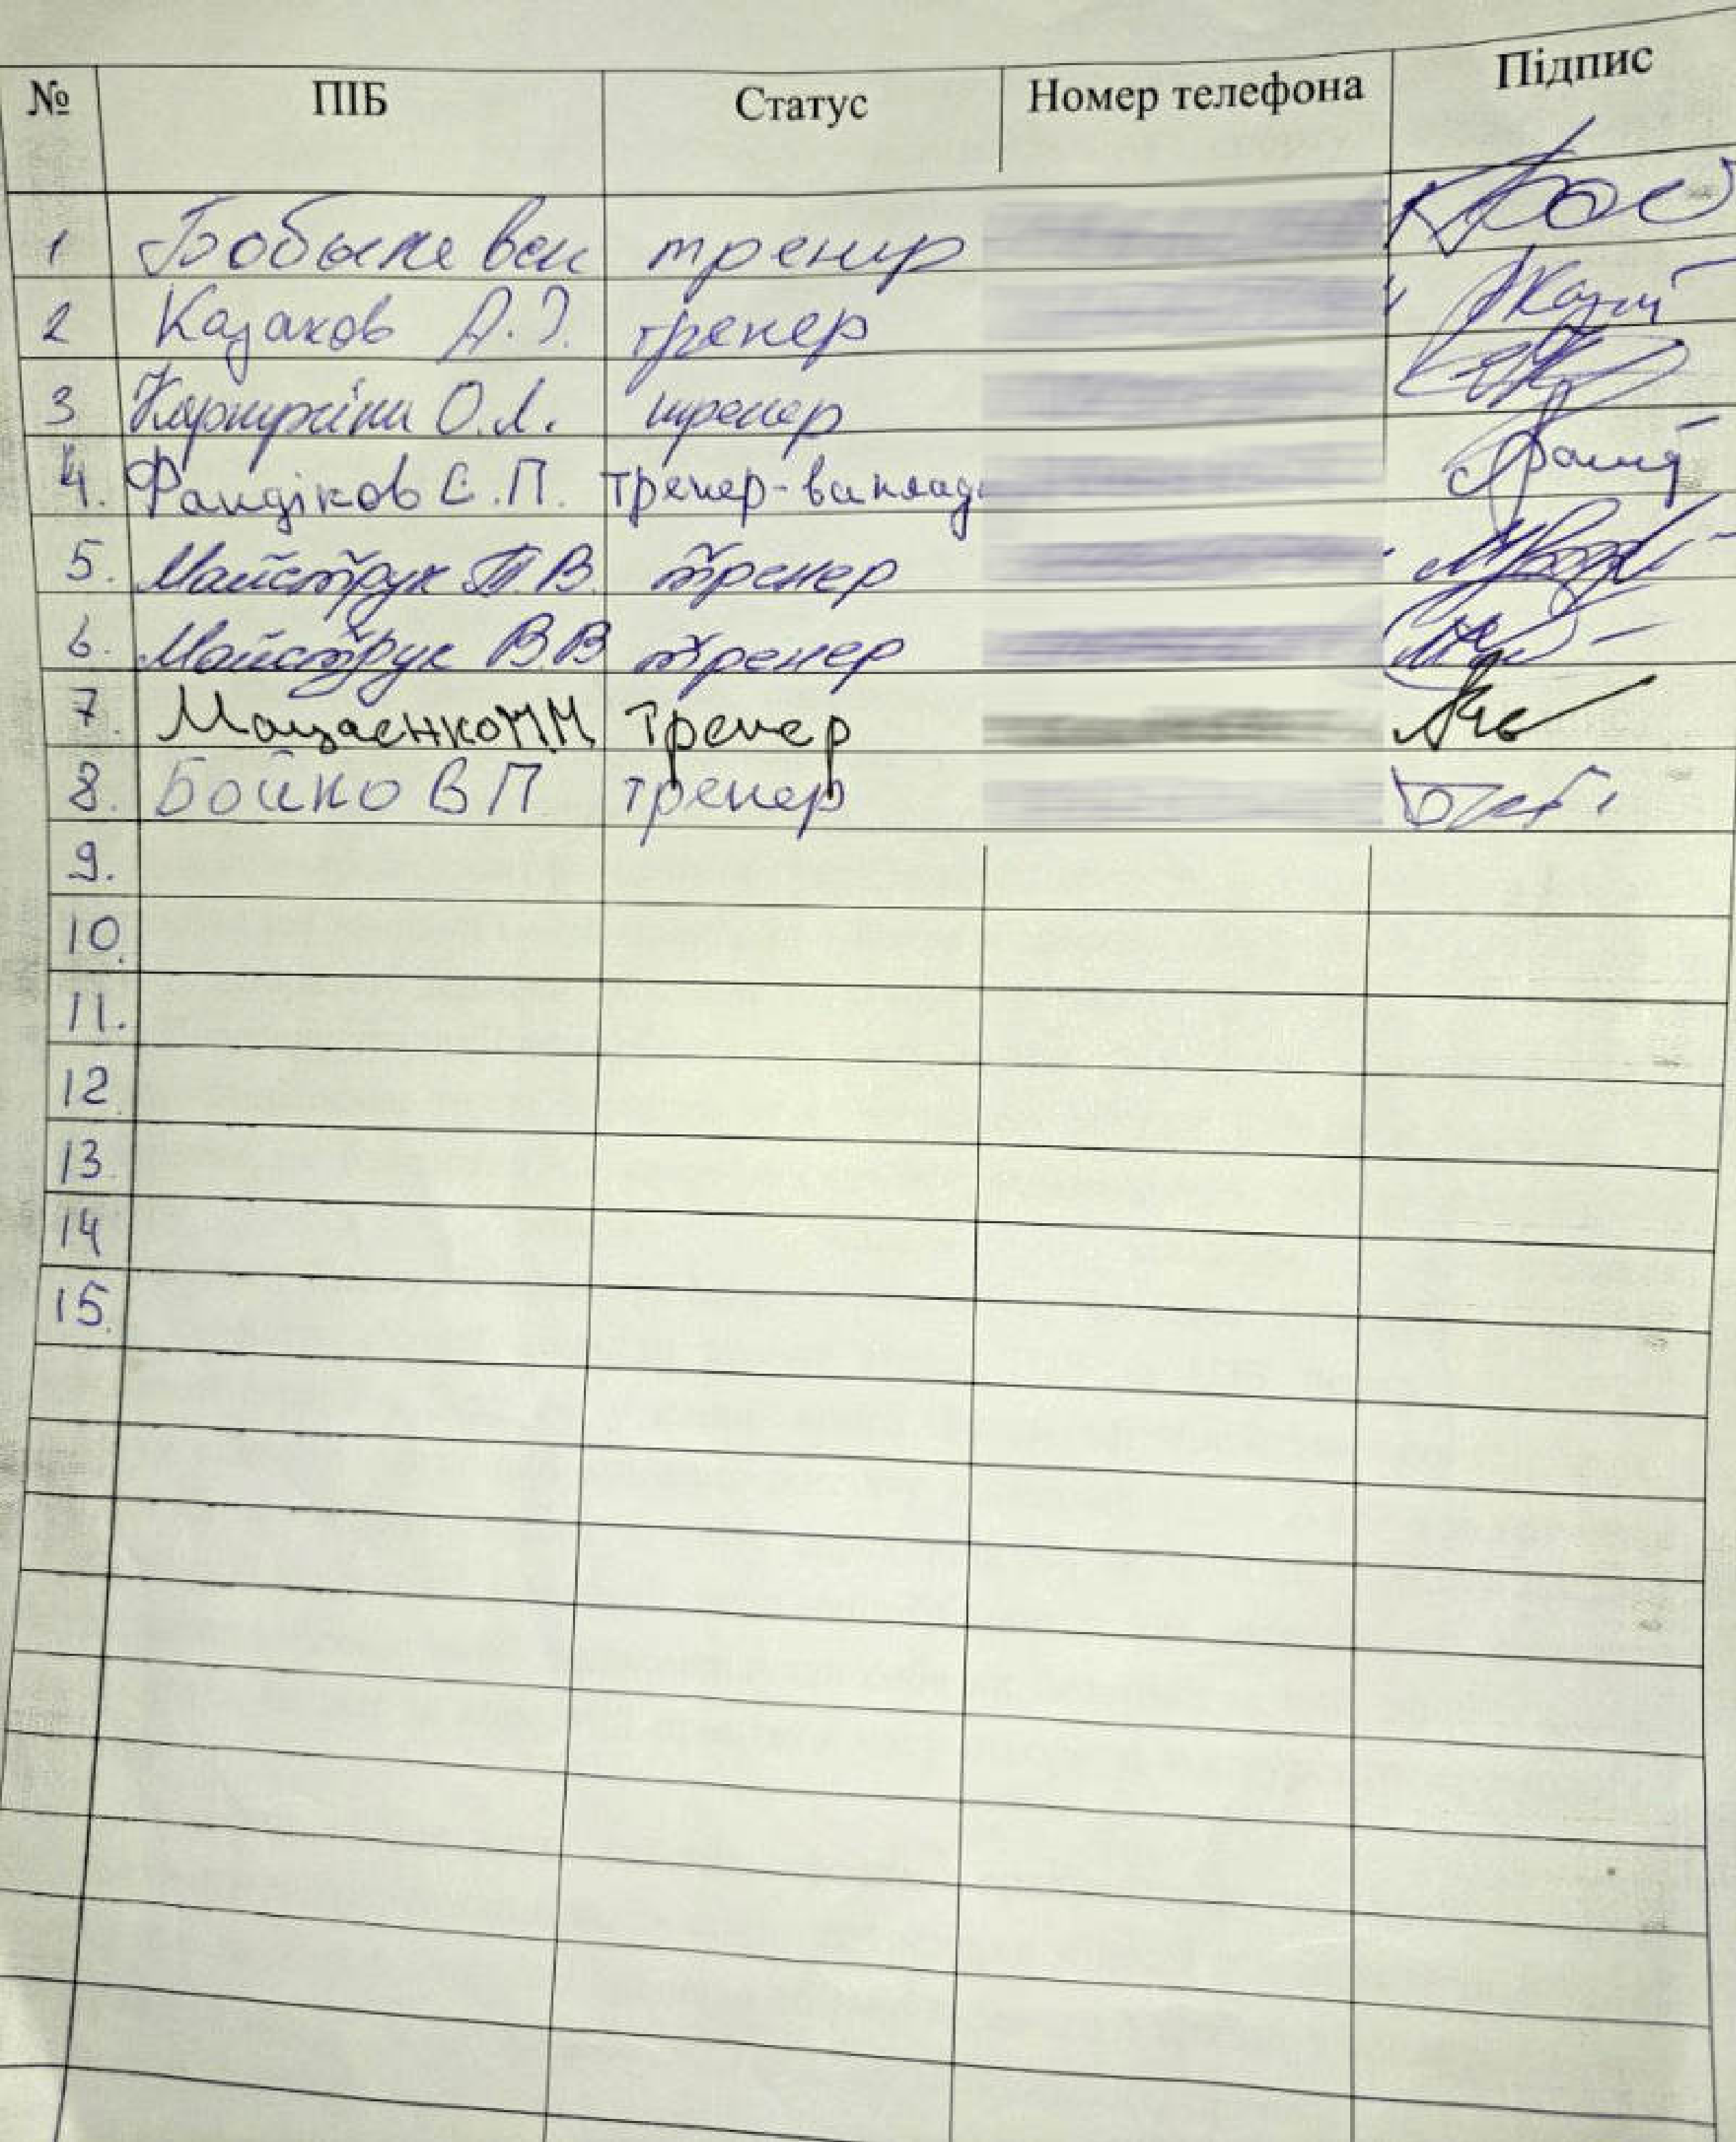 № ПІБ Статус Номер телефона Підпис
1 тренир
2 Казаков А.І. тренер
3 О.Л. тренер
4. Фандіков Є.П. тренер-виклад
5. Майструк Т.В. тренер
6. Майструк В.В тренер
7. М.М тренер
8. Бойко В П тренер
9.
10.
11.
12.
13.
14
15.